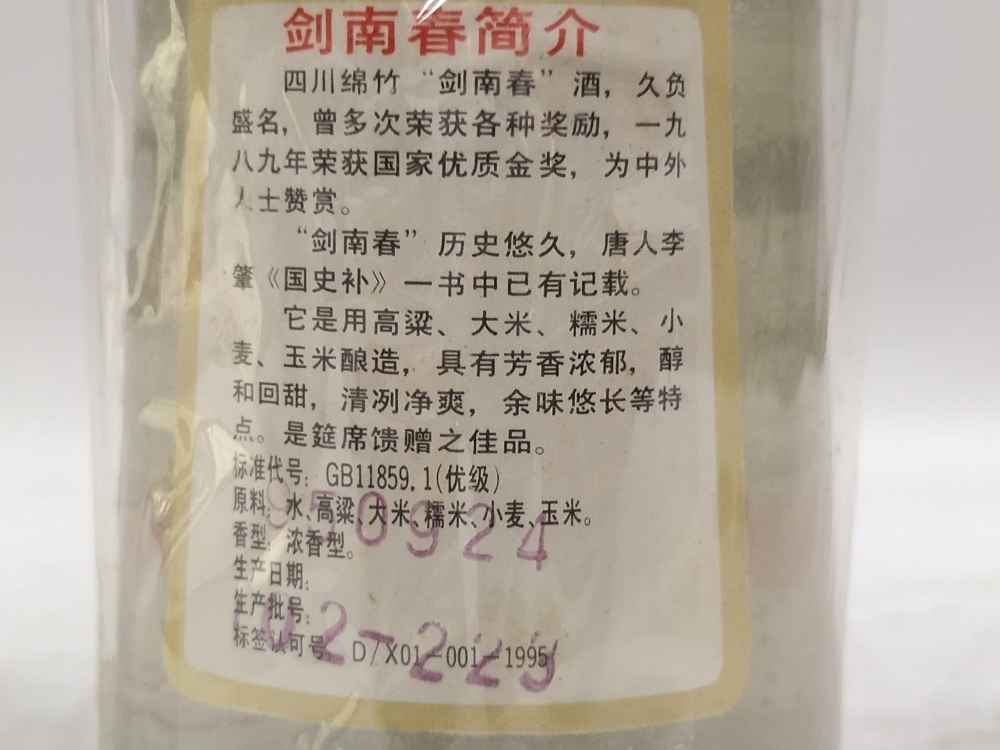 剑南春简介
四川绵竹“剑南春”酒，久负
盛名，曾多次荣获各种奖励，一九
八九年荣获国家优质金奖，为中外
人士赞赏。
“剑南春”历史悠久，唐人李
肇《国史补》一书中已有记载。
它是用高粱、大米、糯米、小
麦、玉米酿造，具有芳香浓郁，醇
和回甜，清冽净爽，余味悠长等特
点。是筵席馈赠之佳品。
标准代号：GB11859.1(优级)
原料：水、高粱、大米、糯米、小麦、玉米。
香型：浓香型。
950924
生产日期：
生产批号：
标签认可号 D/X01-001-1995